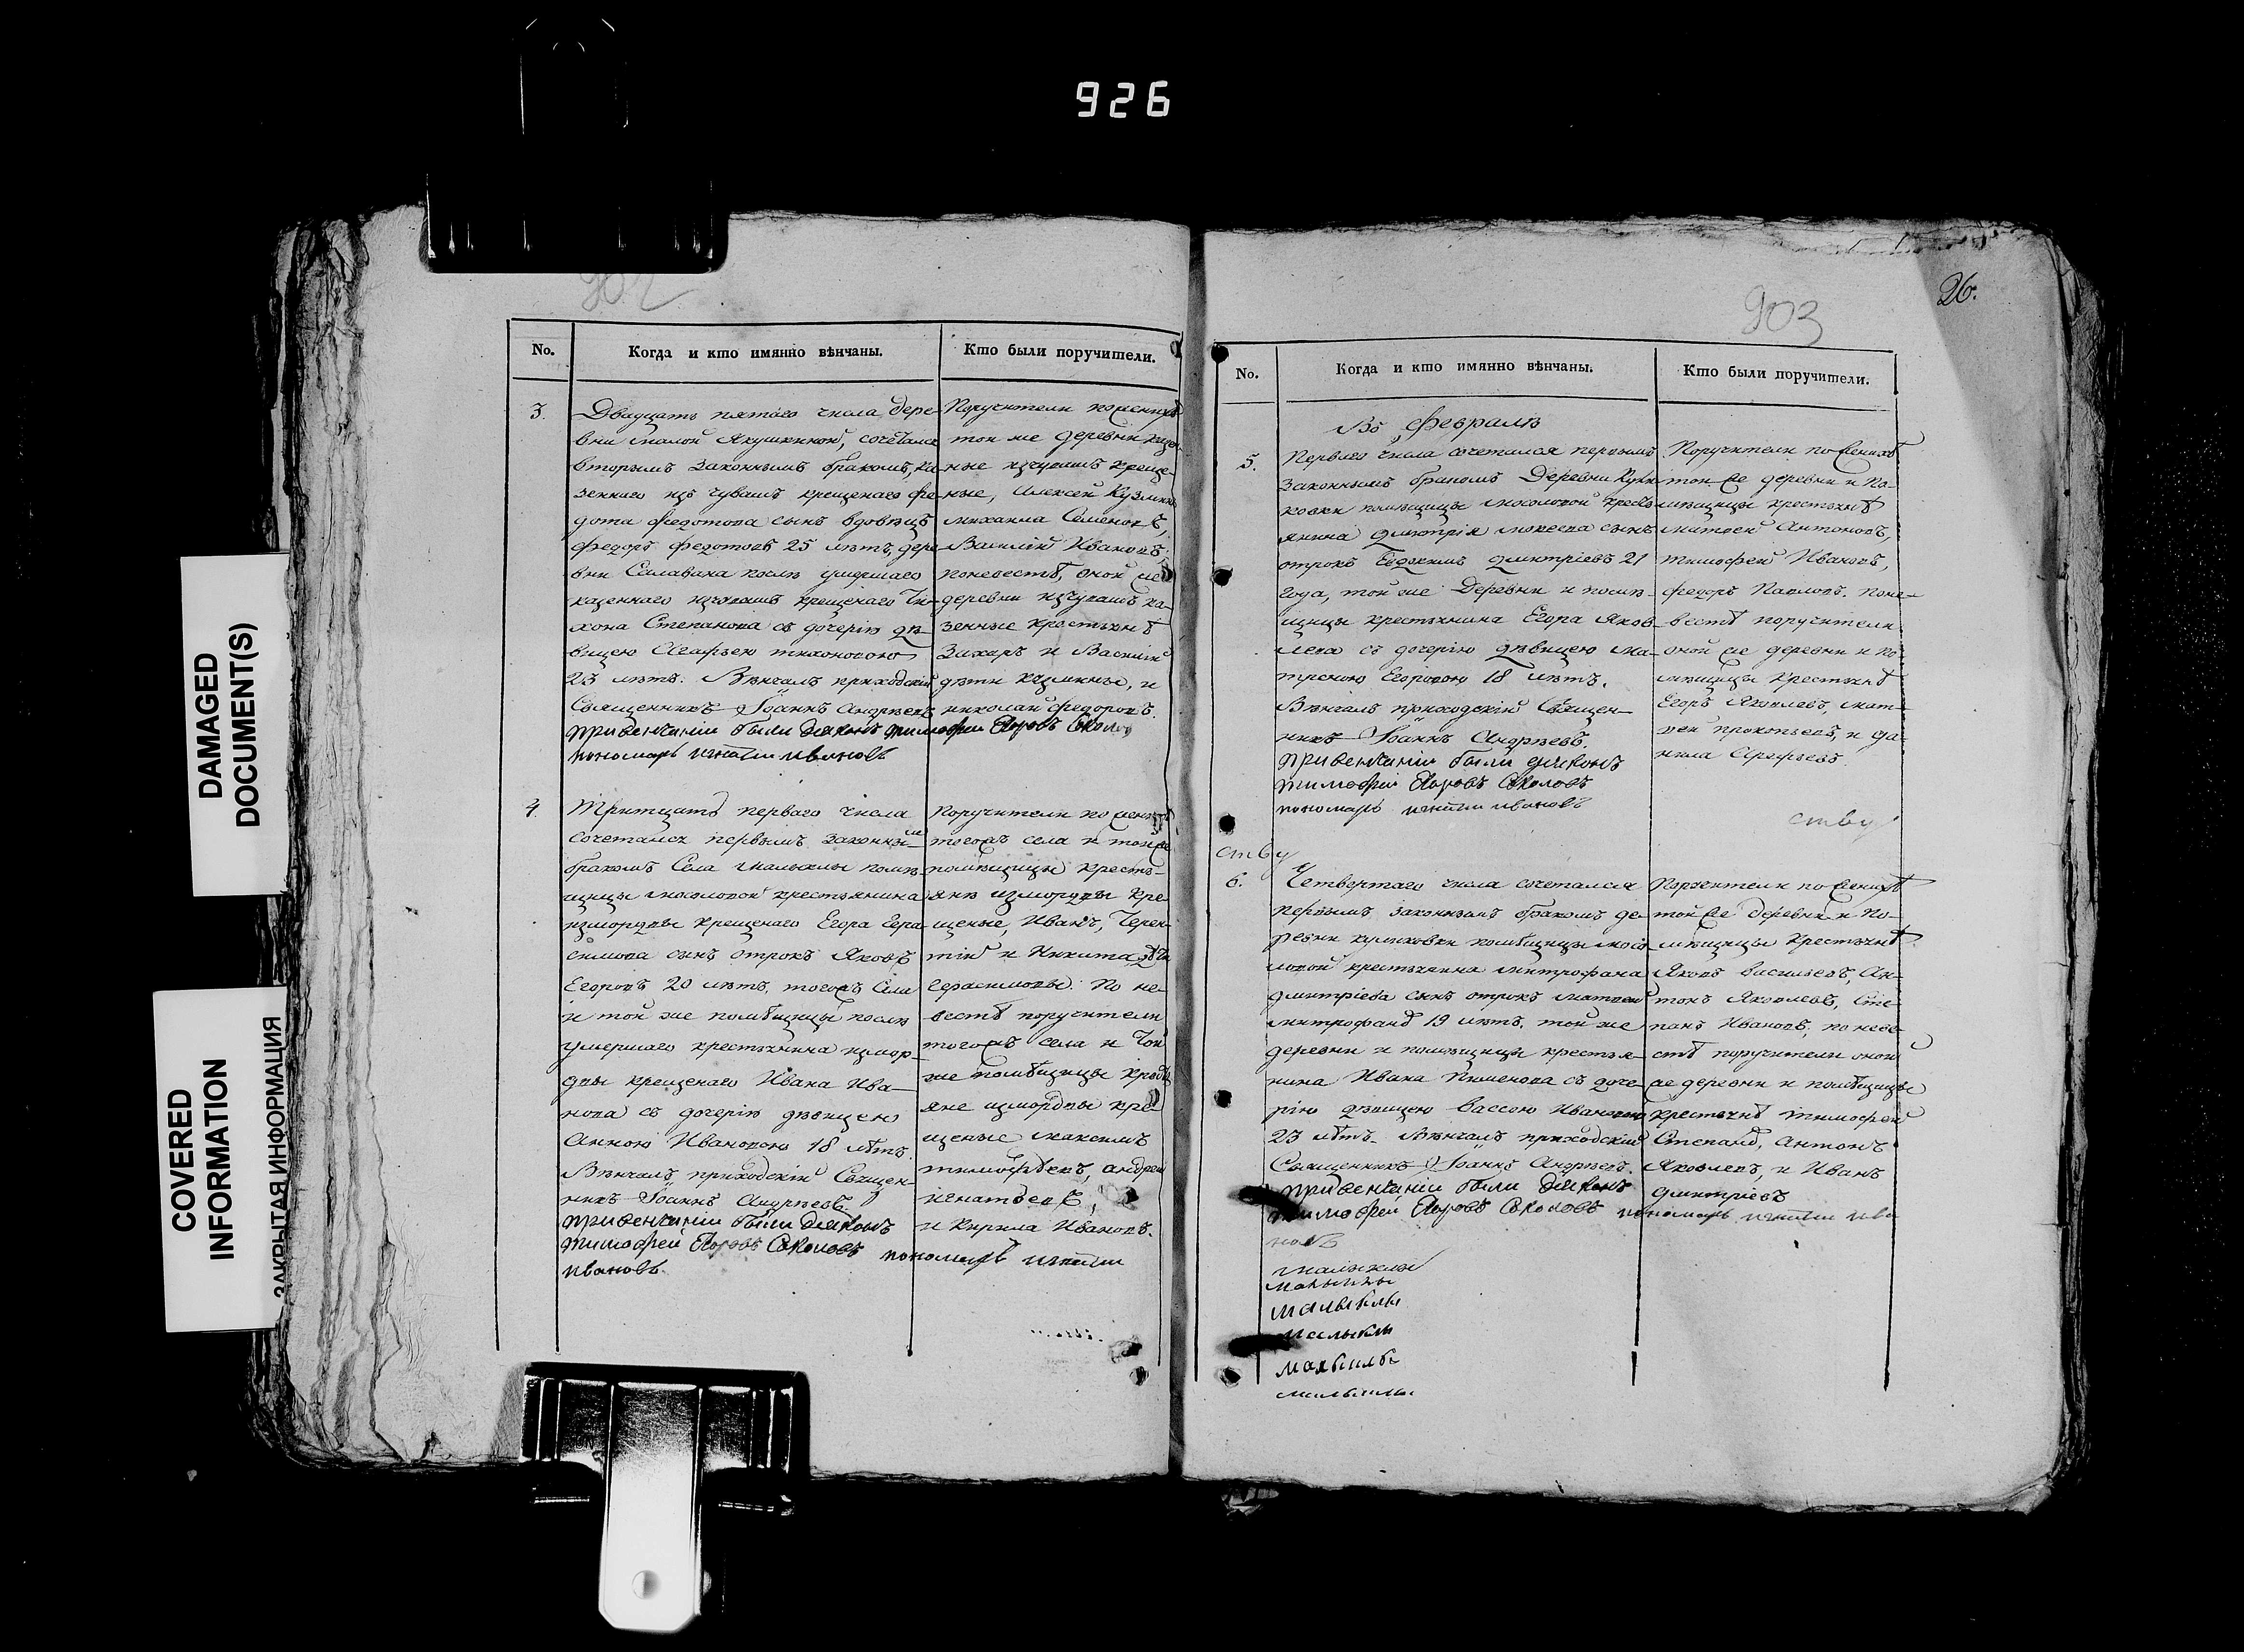 926
DAMAGED
DOCUMENT(S)
COVERED
INFORMATION
ЗАКРЫТАЯ ИНФОРМАЦИЯ
902
No.
Когда и кто имянно вѣнчаны.
Кто были поручители.
3.
Двадцать пятаго числа, дере-
вни малой Якушкиной, сочетался
вторымъ законнымъ бракомъ, ка-
зеннаго изъ чувашъ крещенаго Фе-
дота Федотова сынъ вдовецъ
Федоръ Федотовъ 25 лѣтъ, дере
вни Салавана послѣ умершаго
казеннаго изчувашъ крещенаго Ти-
хона Степанова съ дочерію дѣ-
вицею Агафьею Тихоновою
23 лѣтъ. Вѣнчалъ приходскій
Священникъ Іоаннъ Андреевъ
привенчаніи были диаконъ тимофеи Егоровъ Соколов
пономарь игнатии ивановъ
Поручители по женихѣ
той же деревни казен
ные изчувашъ креще-
ные, Алексей Кузмин
михаила Семеновъ,
Василій Ивановъ;
поневестѣ, оной же
деревни изчувашъ ка-
зенные крестьянѣ
Захаръ и Василій
дѣти кузмины, и
николай Федоровъ.
4.
Тритцать перваго числа
сочетался первымъ законным
бракомъ Села малыклы помѣ-
щицы мосоловой крестьянина
измордвы крещенаго Егора Гера-
симова сынъ отрокъ Яковъ
Егоровъ 20 лѣтъ, тогожъ Села
и той же помѣщицы послѣ
умершаго крестьянина измор-
двы крещенаго Ивана Ива-
нова съ дочерію дѣвицею
Анною Ивановою 18 лѣтъ.
Вѣнчалъ приходскій Священ-
никъ Іоаннъ Андреевъ.
привенчании были диаконъ
тимофеи Егоровъ Соколовъ пономарь игнатии
ивановъ
Поручители по женихѣ
тогожъ села и тойже
помѣщицы кресть-
янѣ измордвы кре-
щеные, Иванъ, Терен-
тій и Никита дѣти
Герасимовы. По не-
вестѣ поручители
тогожъ села и той
же помѣщицы кресть
яне измордвы кре-
щеные максимъ
тимофѣевъ, андрей
игнатьевъ,
и Кирила Ивановъ.
903
26.
No.
Когда и кто имянно вѣнчаны.
Кто были поручители.
Въ Февралѣ
5.
Перваго числа сочетался первымъ
законнымъ бракомъ Деревни Кули
ковки помѣщицы мосоловой кресть
янина Дмитрія мокеева сынъ
отрокъ Евдокимъ Дмитріевъ 21
года, той же Деревни и помѣ-
щицы крестьянина Егора Яков-
лева съ дочерію дѣвицею ма-
треною Егоровою 18 лѣтъ.
Вѣнчалъ приходскій Священ-
никъ Іоаннъ Андреевъ.
привенчании были диаконъ
тимофеи Егоровъ Соколовъ
пономарь игнатии ивановъ
Поручители по женихѣ
той же деревни и по-
мѣщицы крестьянѣ
матвей Антоновъ,
тимофей Ивановъ,
Федоръ Павловъ. поне-
вестѣ поручители
оной же деревни и по-
мѣщицы крестьянѣ
Егоръ Яковлевъ, мат-
вей прокопьевъ, и да-
нила Арефьевъ
ству
ству
6.
Четвертаго числа сочетался
первымъ законнымъ бракомъ де-
ревни куликовки помѣщицы мосо
ловой крестьянина митрофана
дмитріева сынъ отрокъ матвей
митрофановъ 19 лѣтъ, той же
деревни и помѣщицы крестья-
нина Ивана Пименова съ доче-
рію дѣвицею Вассою Ивановою
23 лѣтъ. Вѣнчалъ приходскій
Священникъ Іоаннъ Андреевъ.
привенчании были диаконъ
тимофеи Егоровъ Соколовъ пономарь игнатии ива
новъ
Поручители по женихѣ
той же деревни и по-
мѣщицы крестьянѣ
Яковъ васильевъ, Ан-
тонъ Яковлевъ, Сте-
панъ Ивановъ, по неве-
стѣ поручители оной
же деревни и помѣщицы
крестьянѣ тимофей
Степановъ, антонъ
Яковлевъ, и Иванъ
дмитріевъ
малыклы
малыклы
малыклы
малыклы
малыклы
малыклы